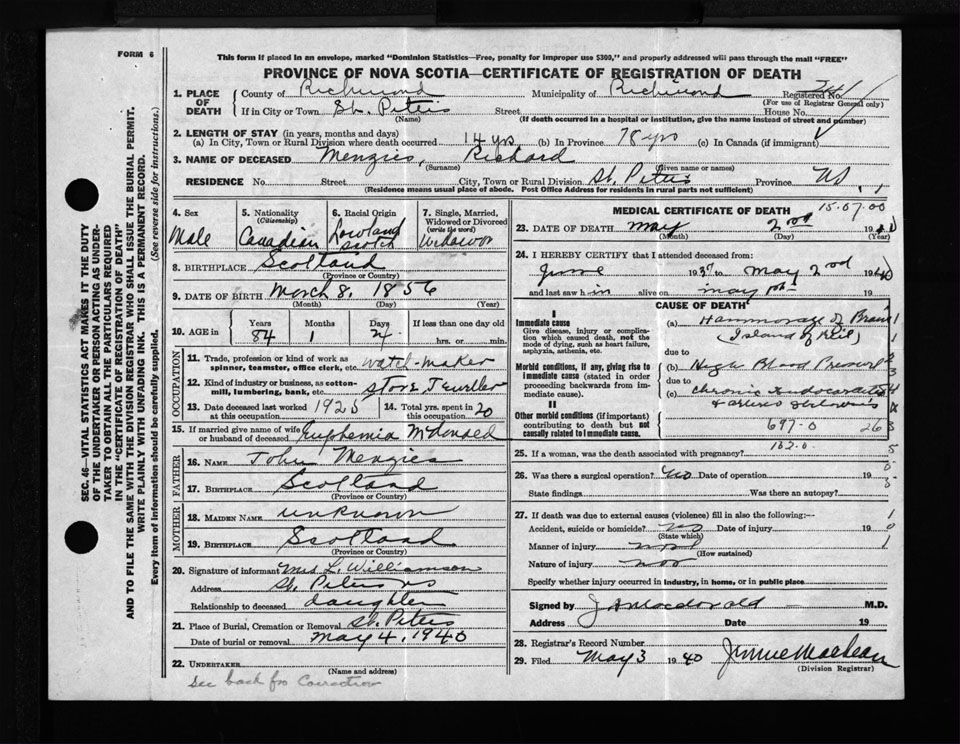 FORM 6
This form if placed in an envelope, marked "Dominion Statistics—Free, penalty for improper use $300," and properly addressed will pass through the mail "FREE"
PROVINCE OF NOVA SCOTIA—CERTIFICATE OF REGISTRATION OF DEATH
1. PLACE OF DEATH
County of Richmond Municipality of Richmond Registered No.
(For use of Registrar General only)
If in City or Town St. Peters Street House No.
(Name) (If death occurred in a hospital or institution, give the name instead of street and number)
2. LENGTH OF STAY (in years, months and days)
(a) In City, Town or Rural Division where death occurred 14 yrs (b) In Province 78 yrs (c) In Canada (if immigrant)
3. NAME OF DECEASED Menzies, Richard
(Surname) (Given name or names)
RESIDENCE No. Street City, Town or Rural Division St. Peters Province NS
(Residence means usual place of abode. Post Office Address for residents in rural parts not sufficient)
4. Sex
Male
5. Nationality
(Citizenship)
Canadian
6. Racial Origin
Lowland
Scotch
7. Single, Married, Widowed or Divorced
(write the word)
Widower
8. BIRTHPLACE Scotland
(Province or Country)
9. DATE OF BIRTH March 8, 1856
(Month) (Day) (Year)
10. AGE in
Years 84
Months 1
Days 24
If less than one day old
hrs. or min.
OCCUPATION
11. Trade, profession or kind of work as spinner, teamster, office clerk, etc. watch-maker
12. Kind of industry or business, as cotton-mill, lumbering, bank, etc. store Jeweller
13. Date deceased last worked at this occupation 1925
14. Total yrs. spent in this occupation 20
15. If married give name of wife or husband of deceased Euphemia McDonald
FATHER
16. NAME John Menzies
17. BIRTHPLACE Scotland
(Province or Country)
MOTHER
18. MAIDEN NAME unknown
19. BIRTHPLACE Scotland
(Province or Country)
20. Signature of informant Mrs L. Williamson
Address St. Peters NS
Relationship to deceased daughter
21. Place of Burial, Cremation or Removal St. Peters
Date of burial or removal May 4, 1940
22. UNDERTAKER
(Name and address)
See back for Correction
MEDICAL CERTIFICATE OF DEATH 15.07.00
23. DATE OF DEATH May 2nd 1940
(Month) (Day) (Year)
24. I HEREBY CERTIFY that I attended deceased from:
June 1937 to May 2nd 1940
and last saw h in alive on May 1st 19
CAUSE OF DEATH
I
Immediate cause
Give disease, injury or complication which caused death, not the mode of dying, such as heart failure, asphyxia, asthenia, etc.
(a) Hammorage of Brain
(Island of Reil)
due to
Morbid conditions, if any, giving rise to immediate cause (stated in order proceeding backwards from immediate cause).
(b) High Blood Pressure
due to
(c) Chronic Endocarditis
II
Other morbid conditions (if important) contributing to death but not causally related to immediate cause.
697-0 26
25. If a woman, was the death associated with pregnancy?
132.0
26. Was there a surgical operation? No Date of operation 19
State findings Was there an autopsy?
27. If death was due to external causes (violence) fill in also the following:—
Accident, suicide or homicide? no Date of injury 19
(State which)
Manner of injury
(How sustained)
Nature of injury
Specify whether injury occurred in industry, in home, or in public place
Signed by J A Macdonald M.D.
Address Date 19
28. Registrar's Record Number
29. Filed May 3 1940 Jennie MacLean
(Division Registrar)
SEC. 46—VITAL STATISTICS ACT MAKES IT THE DUTY
OF THE UNDERTAKER OR PERSON ACTING AS UNDER-
TAKER TO OBTAIN ALL THE PARTICULARS REQUIRED
IN THE "CERTIFICATE OF REGISTRATION OF DEATH"
AND TO FILE THE SAME WITH THE DIVISION REGISTRAR WHO SHALL ISSUE THE BURIAL PERMIT.
WRITE PLAINLY WITH UNFADING INK. THIS IS A PERMANENT RECORD.
Every item of information should be carefully supplied. (See reverse side for instructions.)